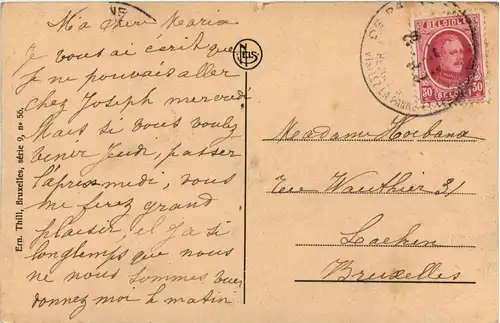 Ma chere Maria
Je vous ai écrit que
je ne pouvais aller
chez Joseph mercredi
Mais si vous voulez
venir Jeudi, passer
l'apres midi, vous
me ferez grand
plaisir, il y a si
longtemps que nous
ne nous sommes vues
donnez moi le matin
Ern. Thill, Bruxelles, série 9, nº 56.
NELS
BELGIQUE
30 30
BELGIE
DE PANNE
Madame Hoebana
rue Wauthier 31
Laeken
Bruxelles